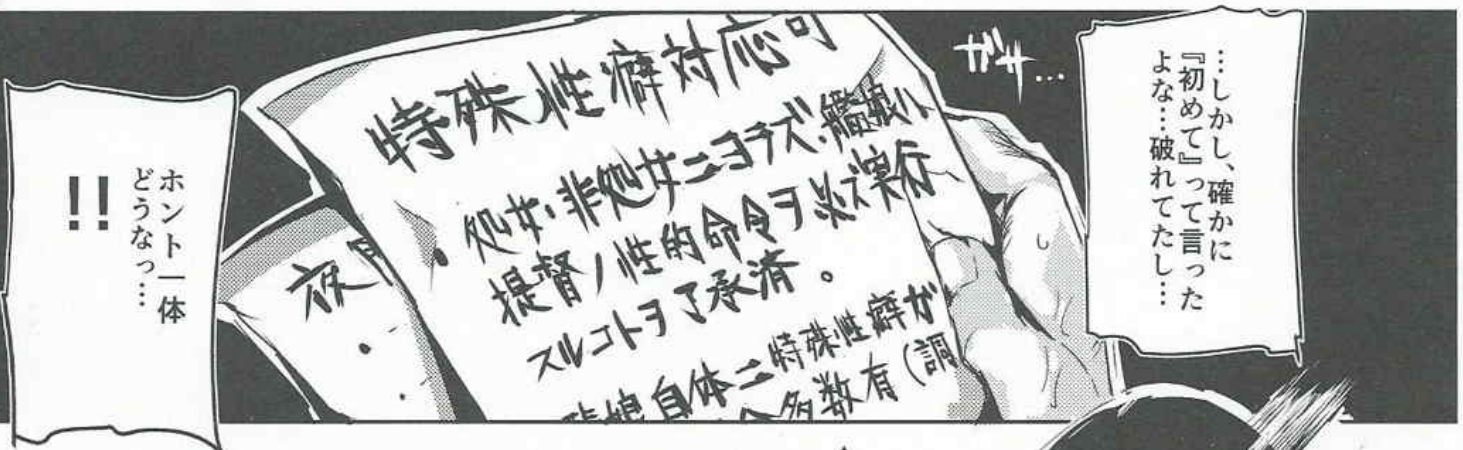 …しかし、確かに
『初めて』って言った
よな…破れてたし…
ギギ…
特殊性癖対応可
・処女・非処女ニヨラズ、艦娘ハ
提督ノ性的命令ヲ必ズ実行
スルコトヲ了承済。
娘自体ニ特殊性癖が
多数有(調
夜
ホント一体
どうなっ…
!!